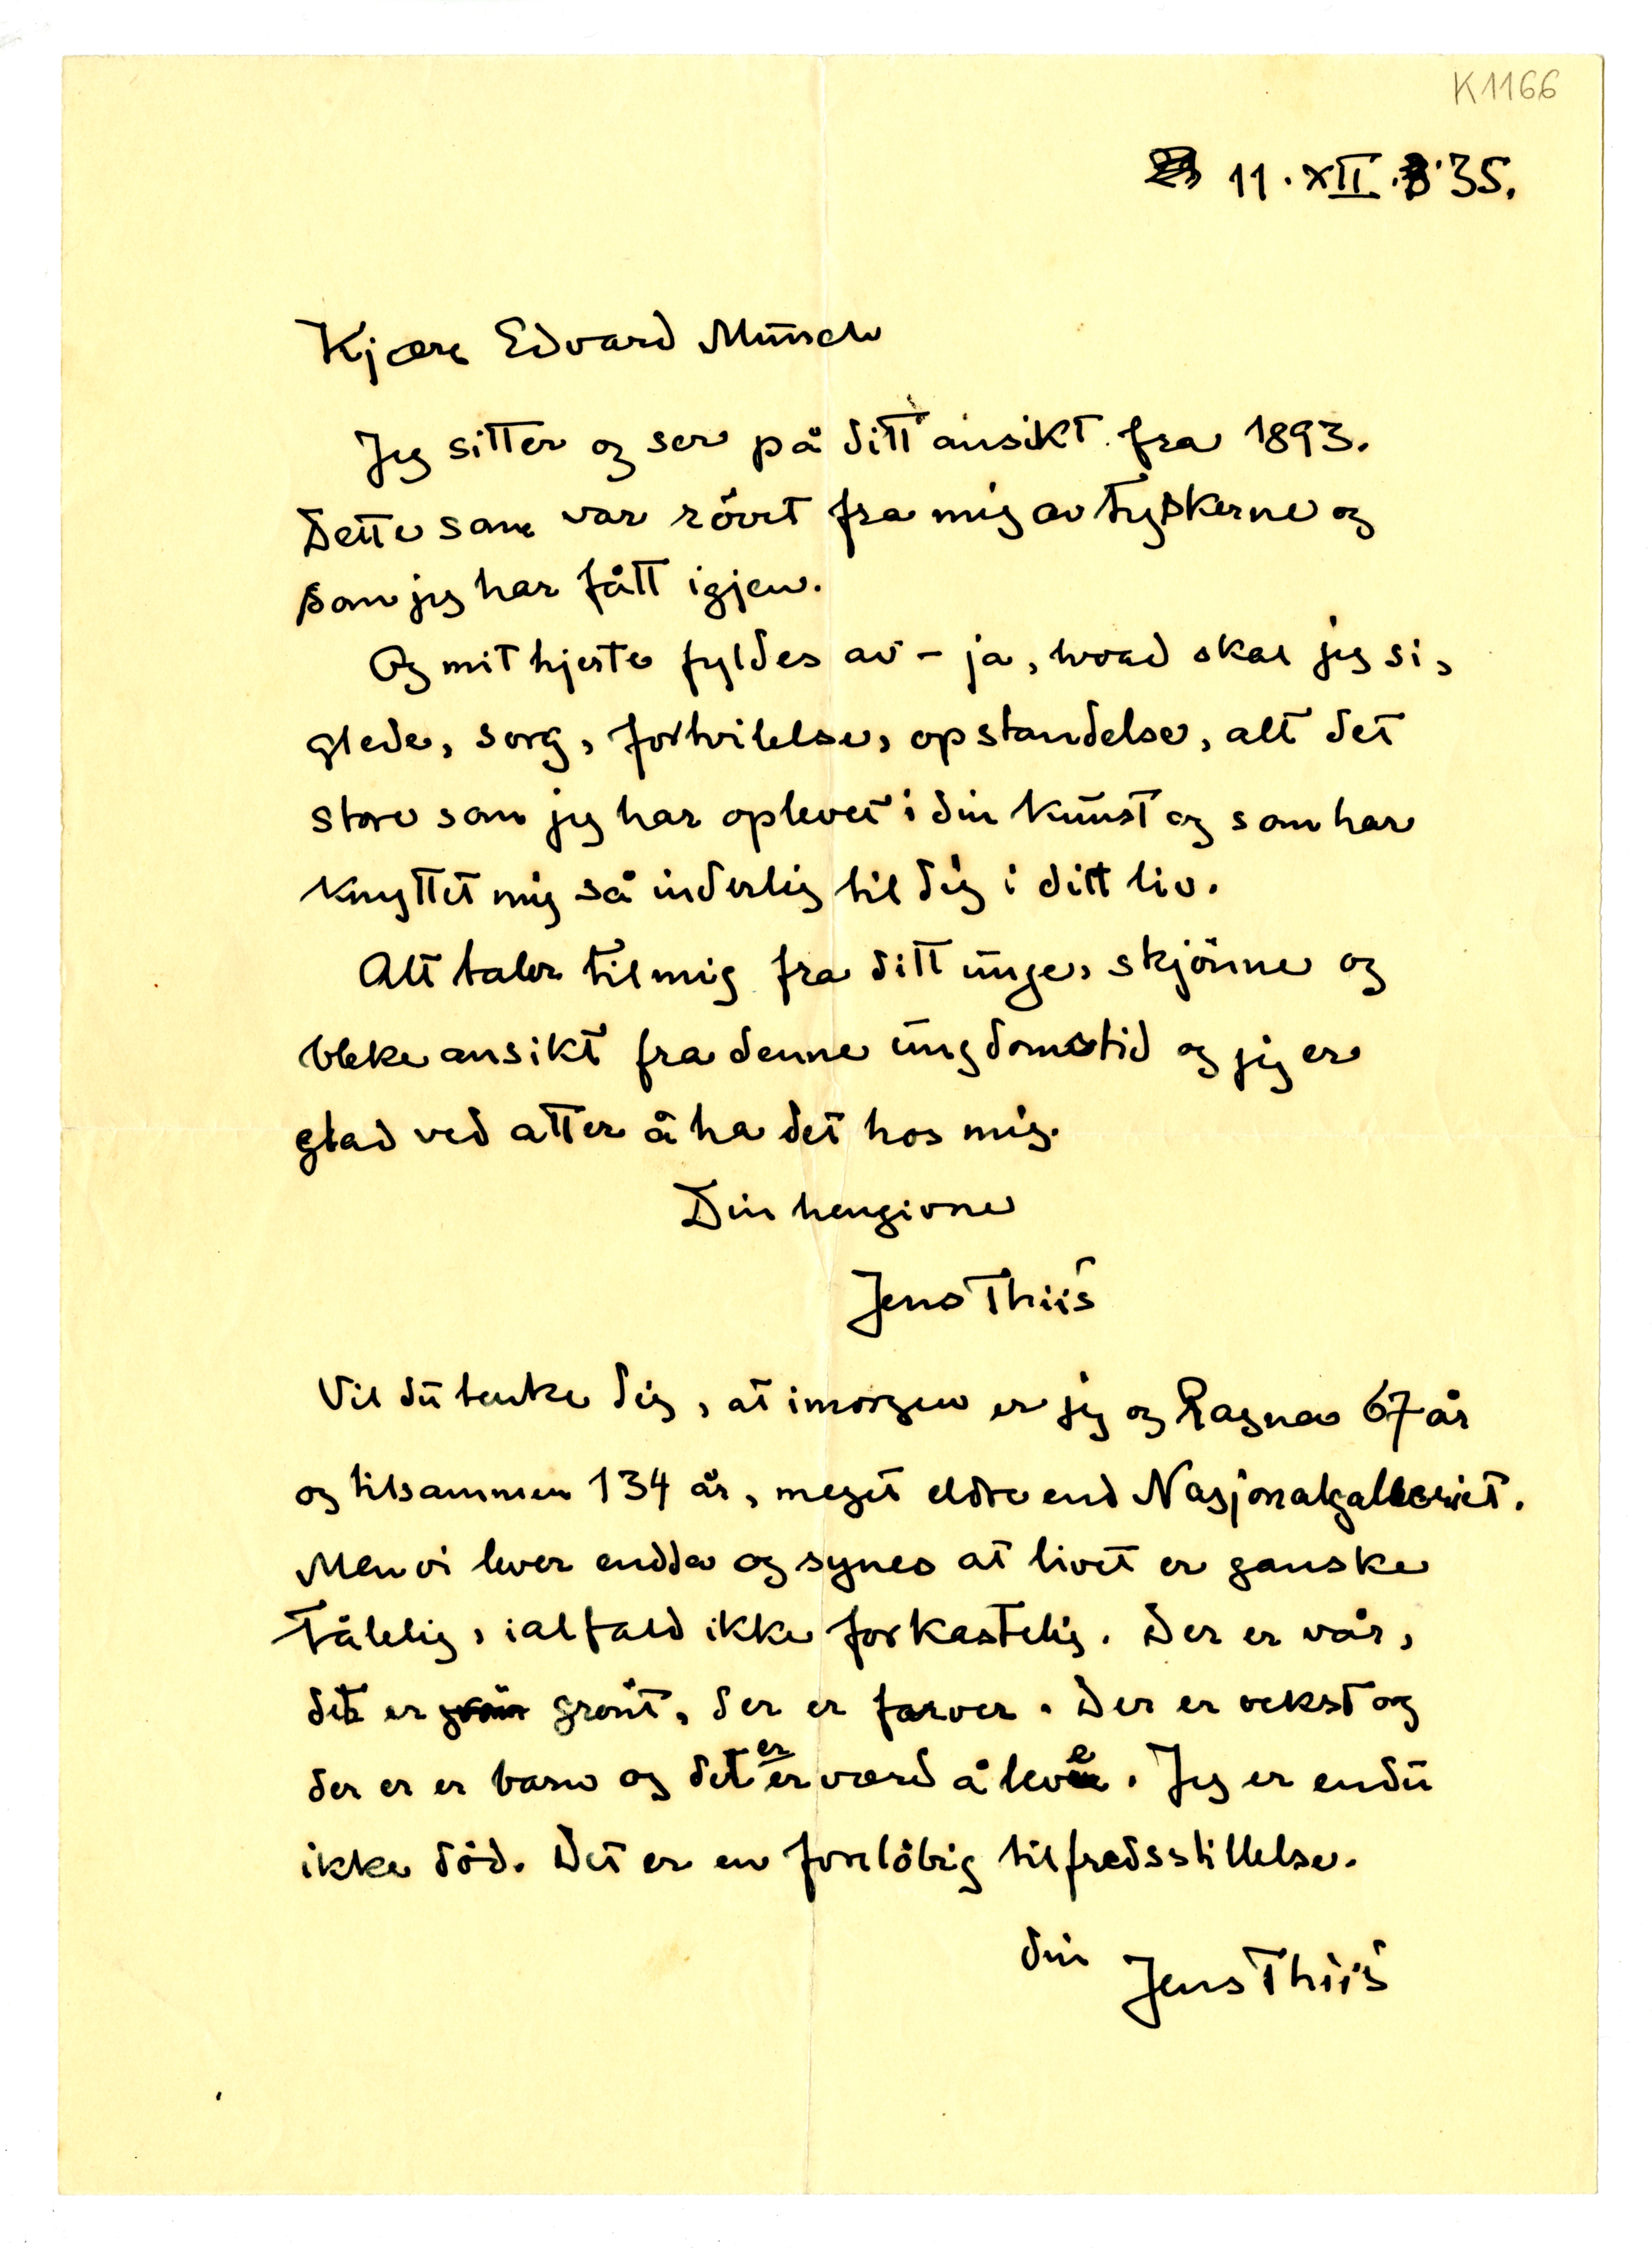 K1166
11.XII.'35.
Kjære Edvard Munch
Jeg sitter og ser på ditt ansikt fra 1893.
Dette som var rövet fra mig av tyskerne og
som jeg har fått igjen.
Og mit hjerte fyldes av – ja, hvad skal jeg si,
glede, sorg, fortvilelse, opstandelse, alt det
store som jeg har oplevet i din kunst og som har
knyttet mig så inderlig til dig i ditt liv.
Alt taler til mig fra ditt unge, skjönne og
bleke ansikt fra denne ungdomstid og jeg er
glad ved atter å ha det hos mig.
Din hengivne
Jens Thiis
Vil du tenke dig, at imorgen er jeg og Ragna 67 år
og tilsammen 134 år, meget eldre end Nasjonalgalleriet.
Men vi lever endda og synes at livet er ganske
tålelig, ialfald ikke forkastelig. Der er vår,
det er grönt, der er farver. Der er vekst og
der er er barn og det er værd å leve. Jeg er endu
ikke död. Det er en forelöbig tilfredsstillelse.
din Jens Thiis